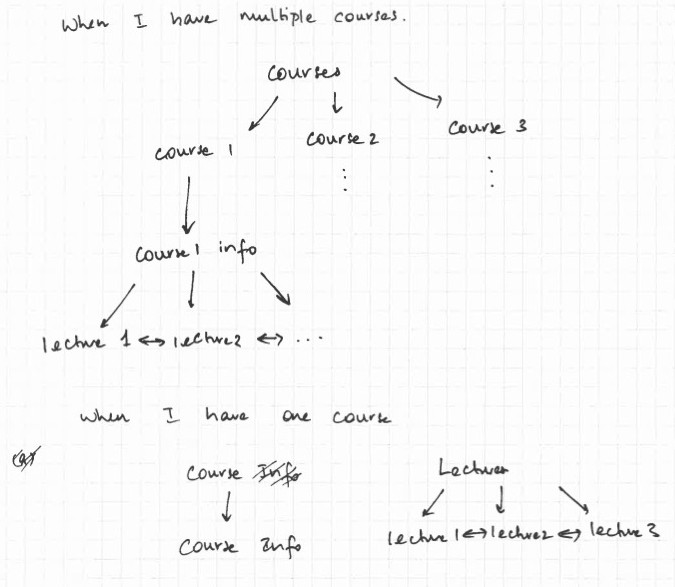 When I have multiple courses.
Courses
Course 1 Course 2 Course 3
Course 1 info
lecture 1 ↔ lecture 2 ↔ ...
When I have one course
Course
Lectures
Course Info
lecture 1 ↔ lecture 2 ↔ lecture 3